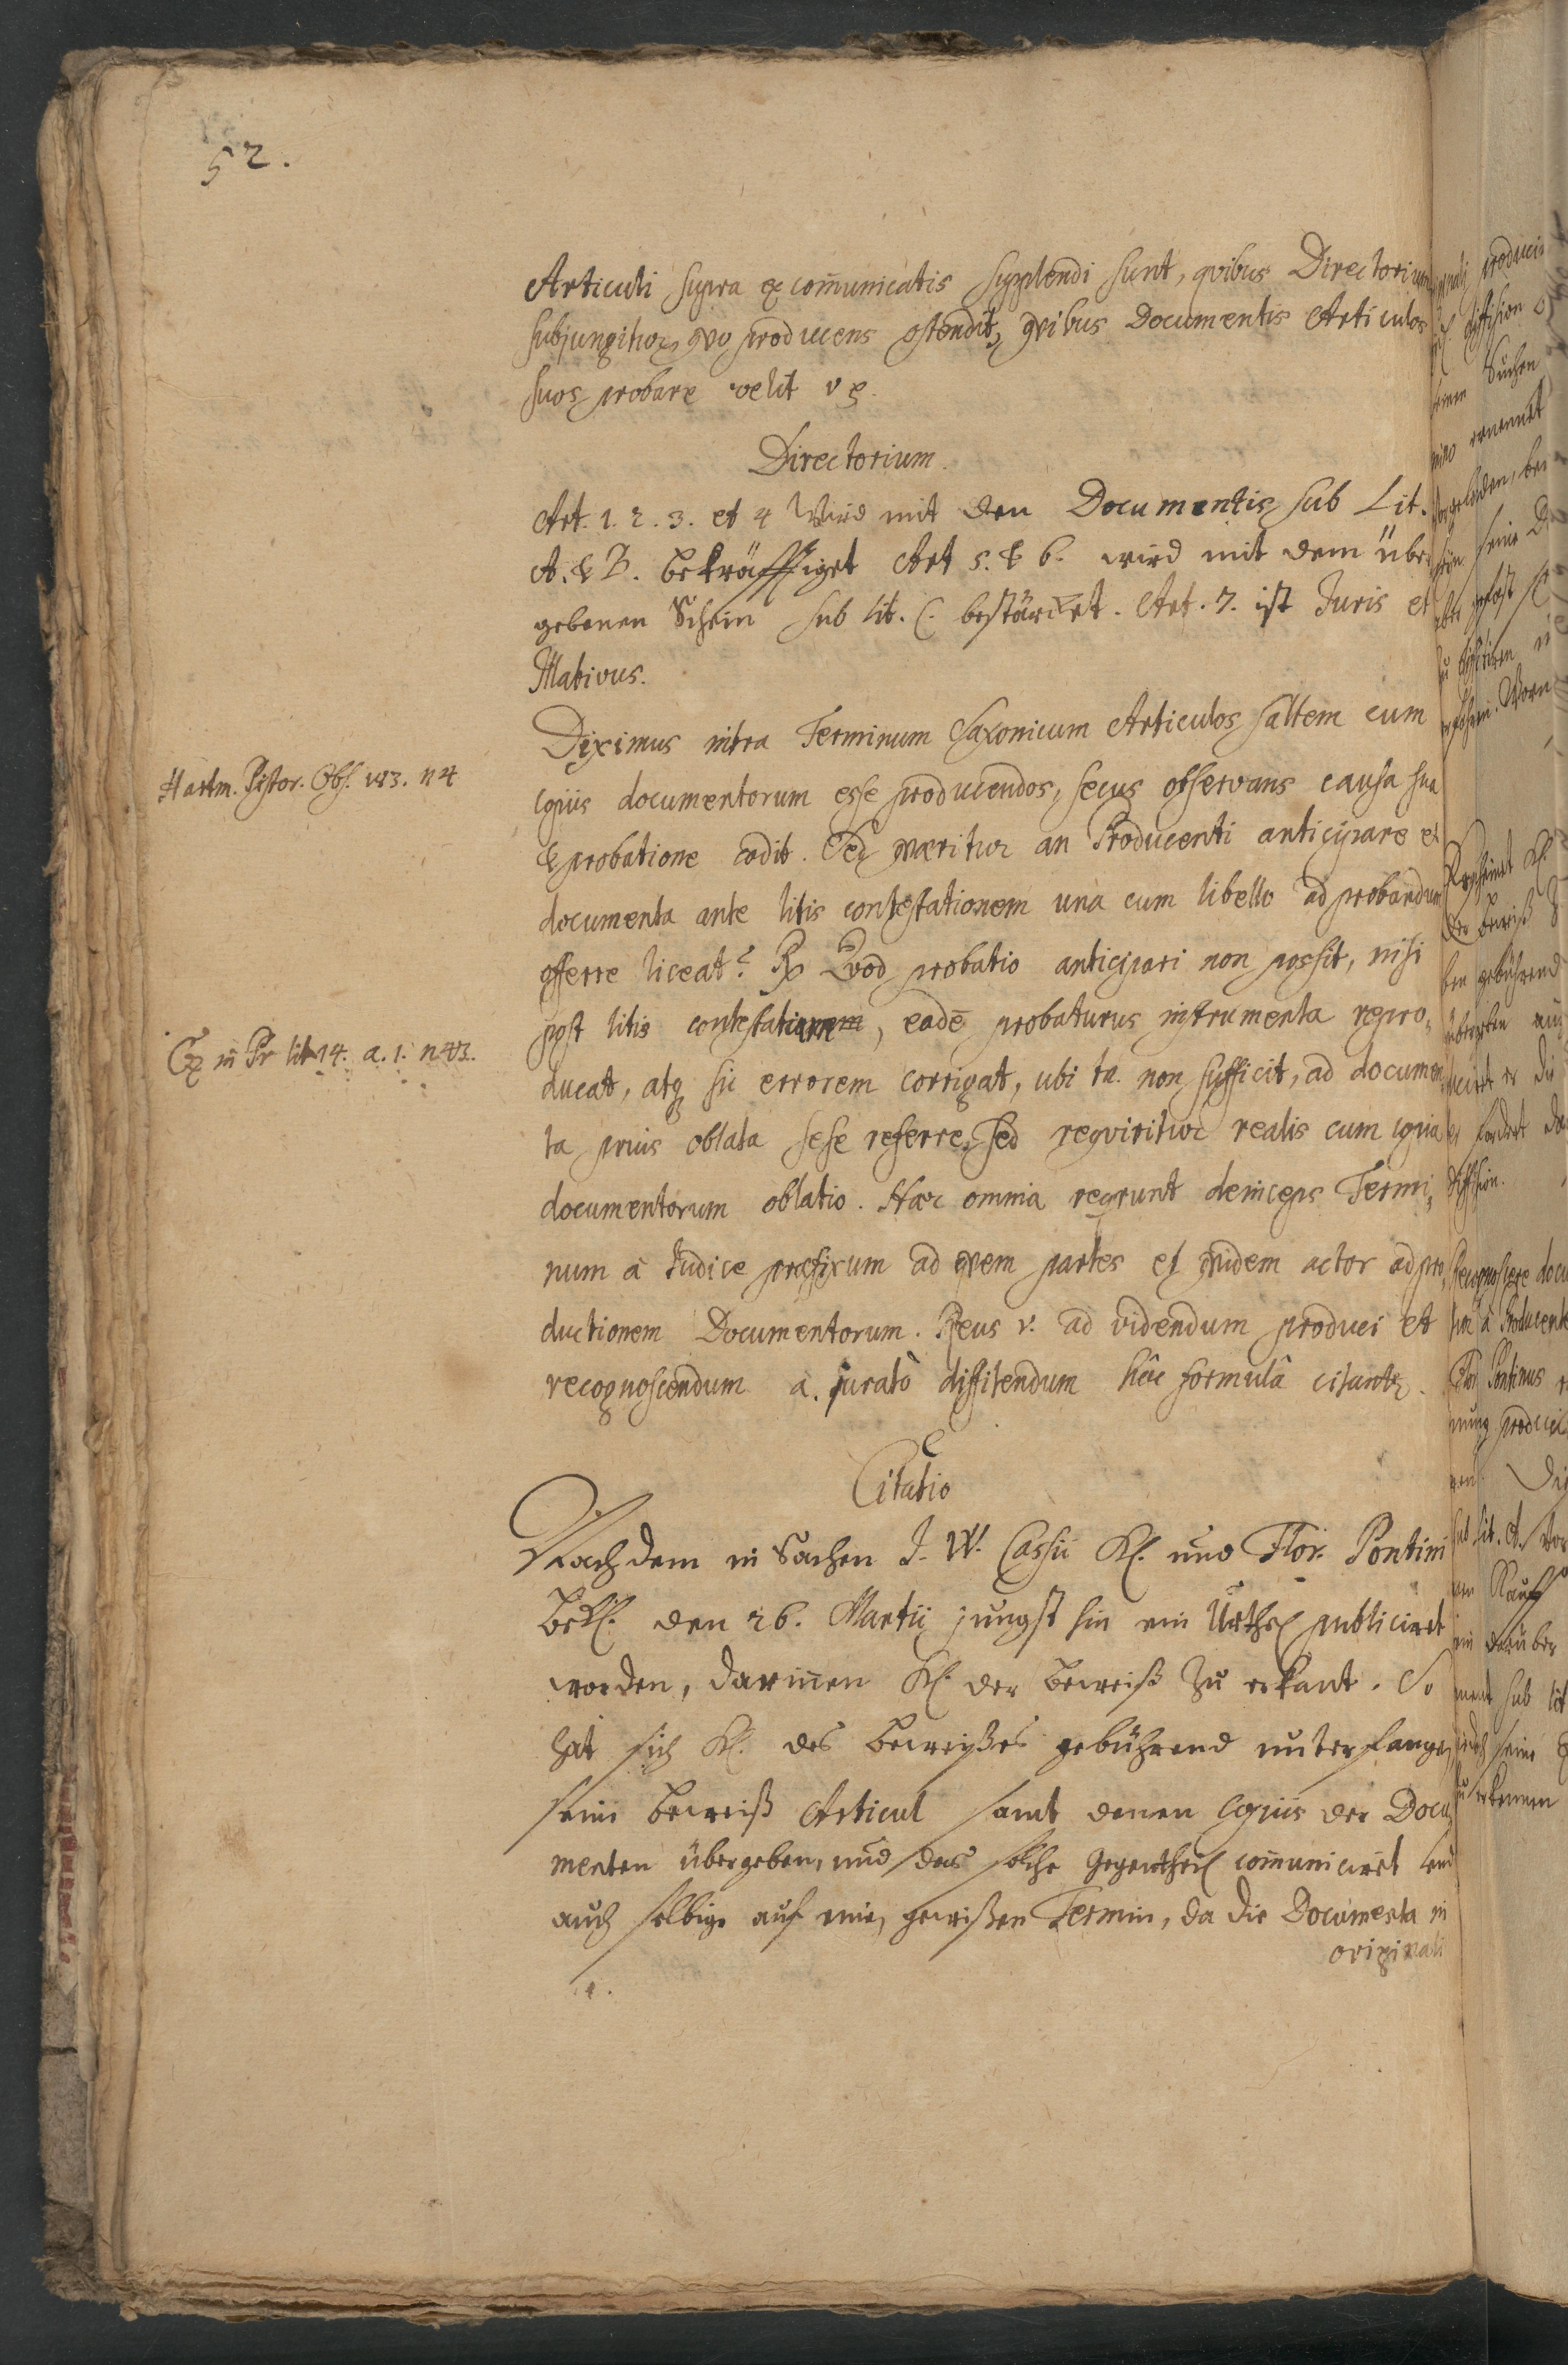 52.
Articuli supra ex com̄unicatis supplendi sunt, qvibus Directorium
subjungitur, qvo producens ostendit, qvibus Documentis Articulos
suos probare velit v g.
Directorium.
Art. 1. 2. 3. et 4 Wird mit den Documentis sub Lit.
A. & B. bekräfftiget Art 5. & 6. wird mit dem über
gebenen Schein sub lit. C. bestärcket. Art. 7. ist Juris et
Illativus.
Diximus intra Terminum Saxonicum Articulos saltem cum
Hartm. Pistor. Obs. 183. n 4
copiis documentorum esse producendos, secus observans causa sua
& probatione cadit. Sed qværitur an Producenti anticipare et
documenta ante litis contestationem una cum libello ad probandum
offerre liceat? Rx Qvod probatio anticipari non possit, nisi
post litis contestationem, eadē probaturus instrumenta repro,
in Pr lit 14. a. 1. n 43.
ducat, atq sic errorem corrigat, ubi ta. non sufficit, ad documen
ta prius oblata sese referre, sed reqviritur realis cum copia
documentorum oblatio. Hæc omnia reqrunt deinceps Termi,
num à Judice præfixum ad qvem partes et qvidem actor ad pro,
ductionem Documentorum. Reus v. ad videndum produci et
recognoscendum a. juratò diffitendum hâc formulâ citantr.
Citatio
Nachdem in Sachen J. W. Cassii Kl. und Flor. Pontini
Bekl. den 26. Martii jüngst hin ein Urthel publiciret
worden, darin̄en Kl. der Beweiß zu erkant. So
hat sich Kl. des Beweißes gebührend unterfangen,
seine Beweiß Articul samt denen Copiis der Docu,
menten übergeben, und das solche Gegentheil com̄uniciret und
auch selbige auf einen gewißen Termin, da die Documenta in
originali